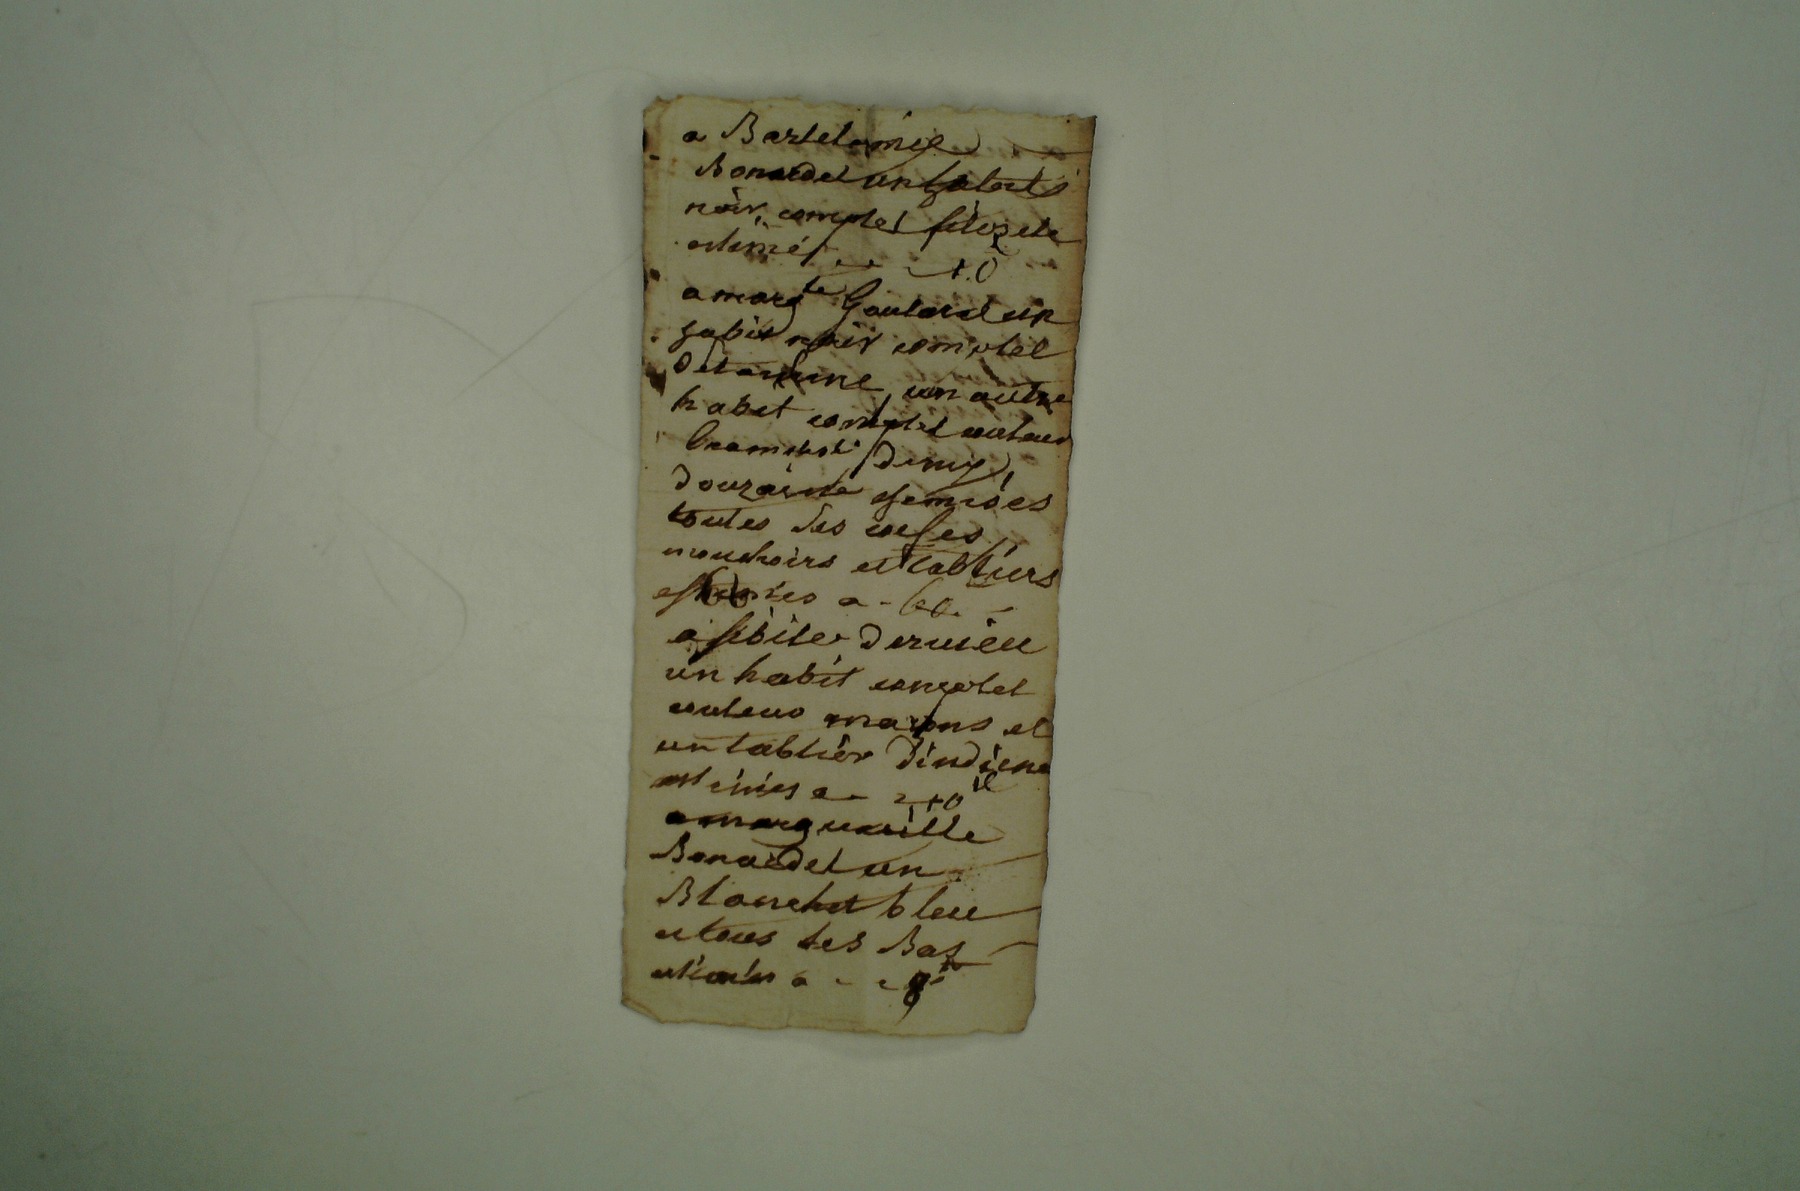 a Bartelomie
Bonardel un habits
noir complet filozele
estimé 40
a marg te Goutarel un
habit noir complet
Detamine un autre
habet complet couleur
Demy
Douzaine chemises
toutes ses coefes
mouchoirs et tabliers
estimés a - 60
a sibile Dervieu
un habit complet
couleur marons et
un tablier Dindiene
estimes a - 40 ll
a marguerille
Bonardel un
Blanchet bleu
et tous ses Bas
estimés a